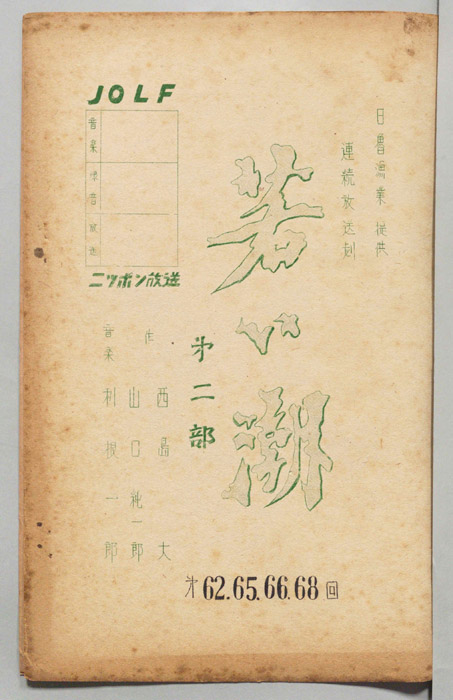 日魯漁業 提供
連続放送劇
若い潮
第二部
JOLF
音楽
録音
放送
ニッポン放送
作 西島大
山口純一郎
音楽 利根一郎
第62.65.66.68回